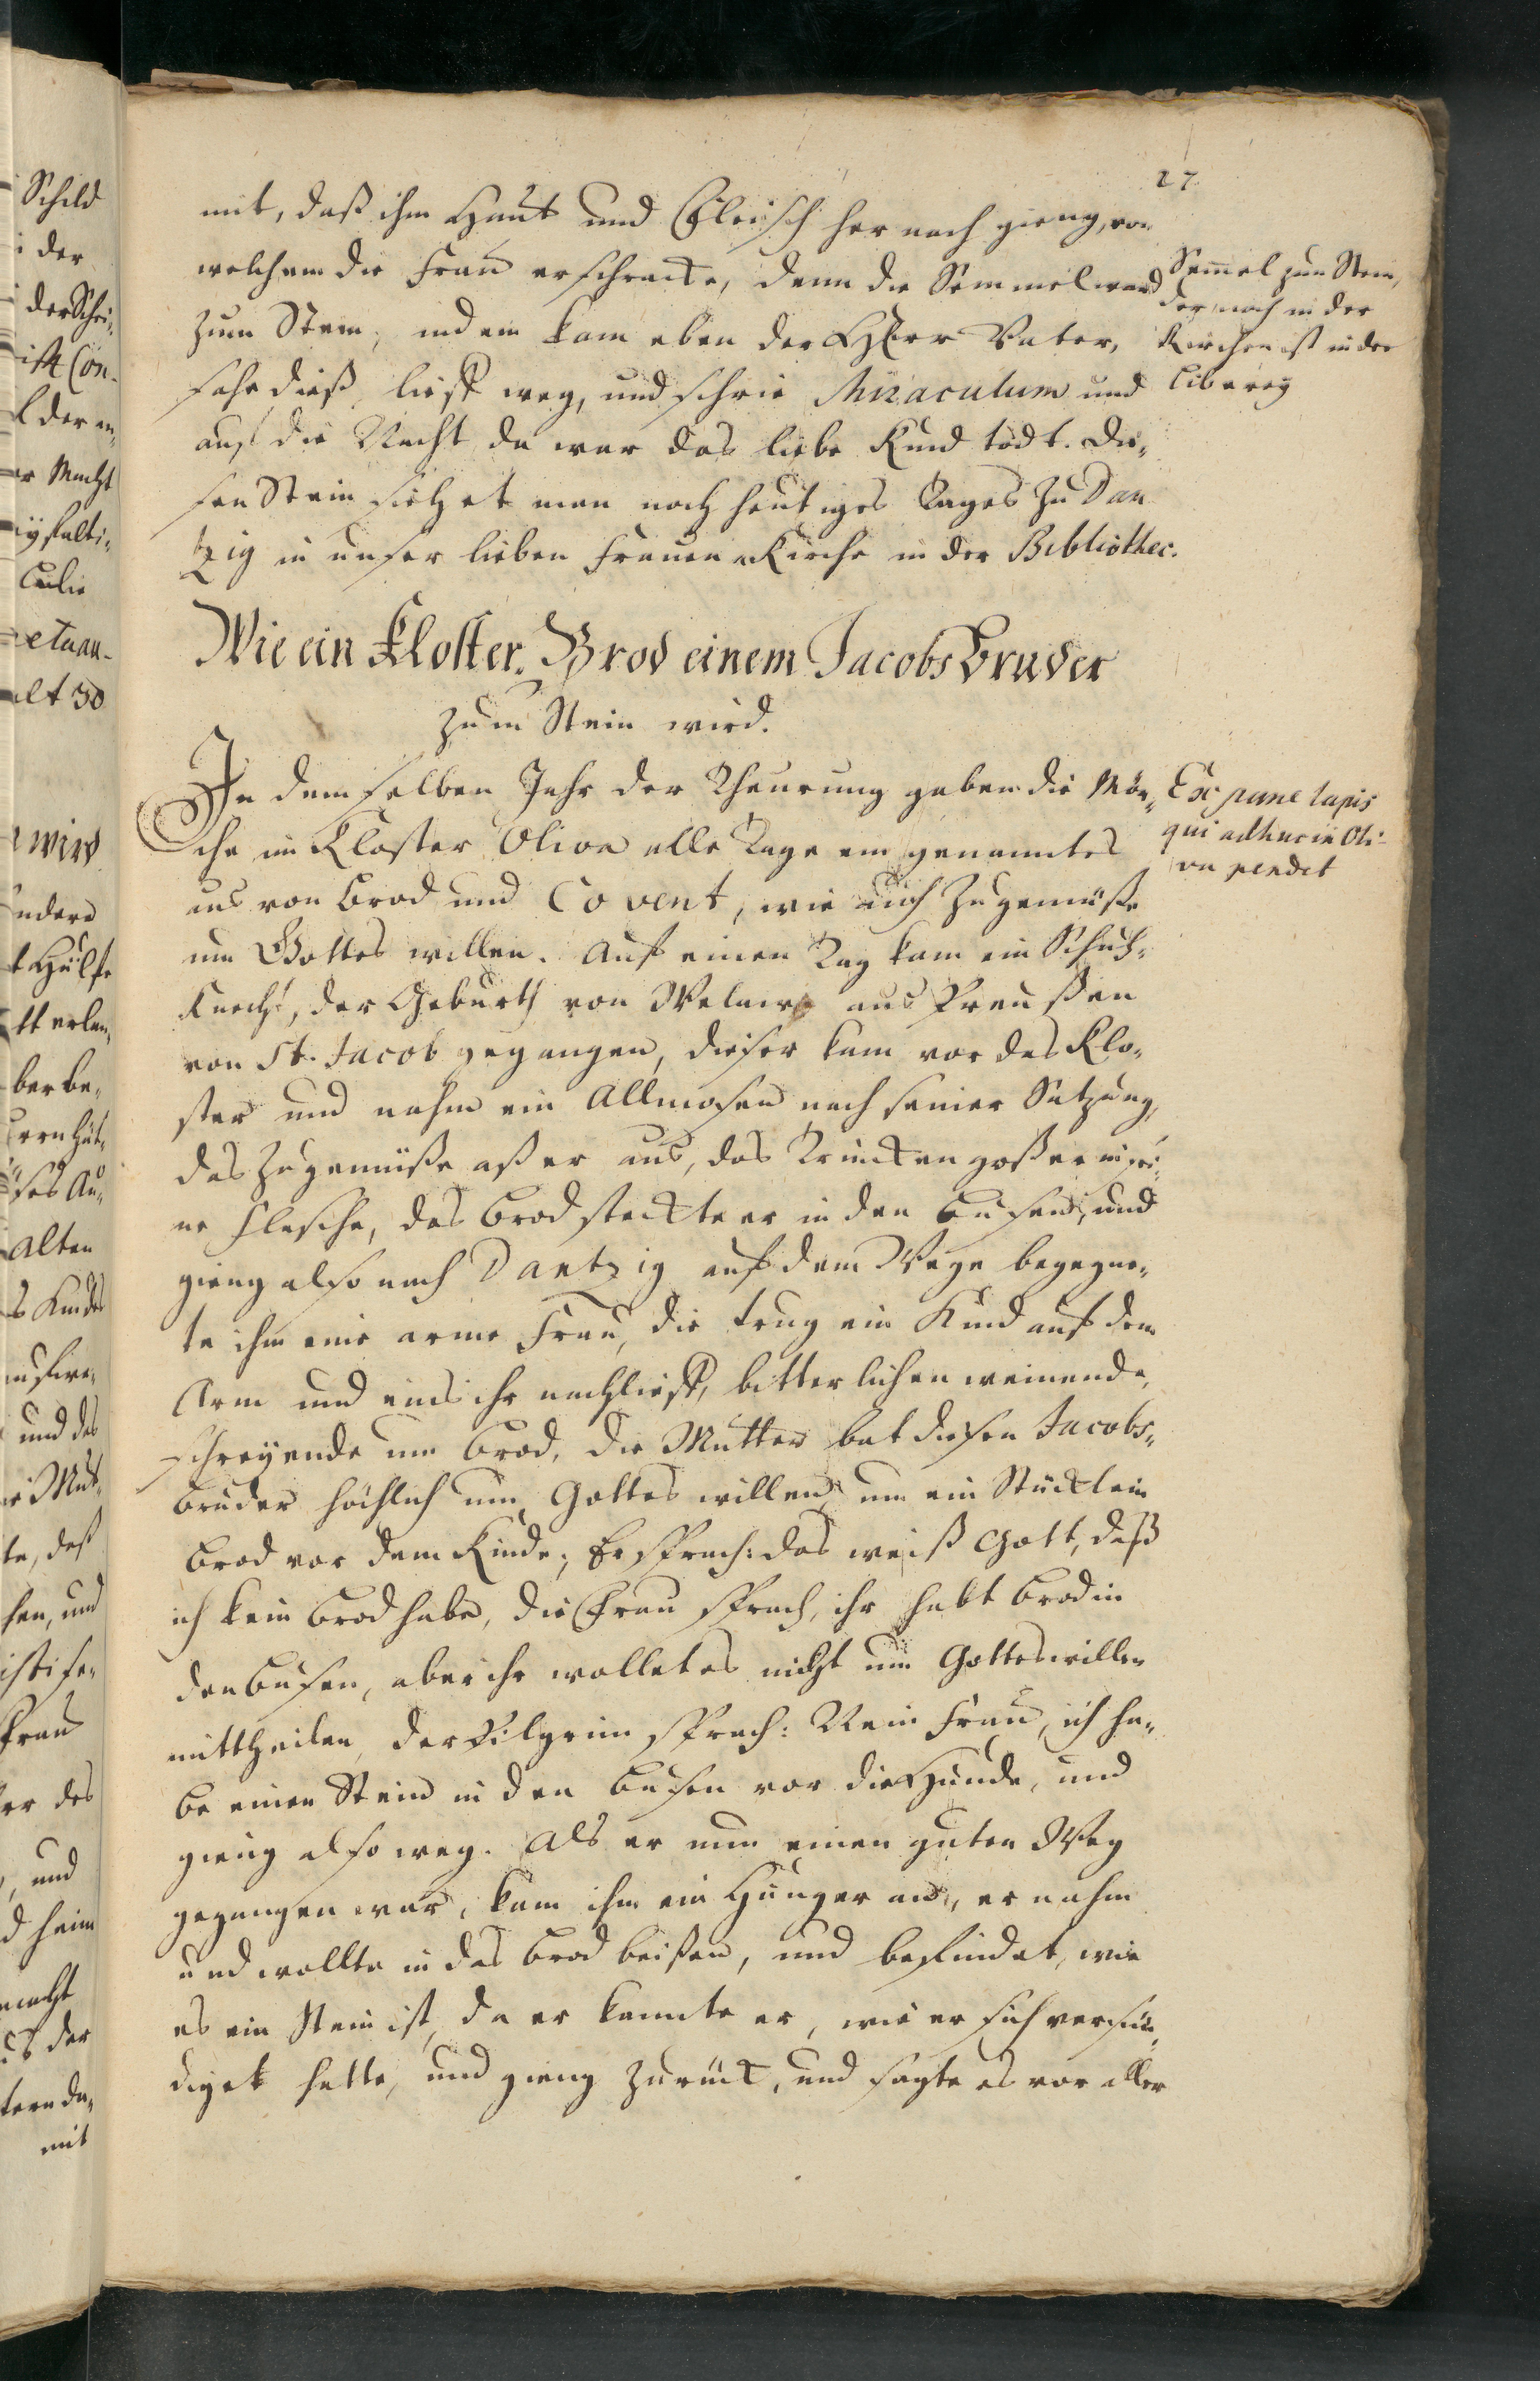 27.
mit, daß ihm Haut und Fleisch her nach gieng, von
welchem die Frau erschrackte, denn die Semmel ward
zum Stein, indem kam eben der Herr Vater,
sahe dieß lieff weg, und schrie Miraculum und
auf die Nacht da war das liebe Kind todt. Die„
sen Stein siehet man noch heutiges Tages zu Dan
tzig in unser lieben Frauen Kirche in der Bibliothec.
Semel zum Stein,
der noch in der
Kirchen ist in der
Liberey
Wie ein Kloster-Brod einem Jacobsbruder
zum Stein wird.
In demselben Jahr der Theurung gaben die Mön„
che im Kloster Oliva alle Tage ein genanntes
aus von Brod und Covent, wie auch Zugemüße
um Gottes willen. Auf einen Tag kam ein Schuh„
Knecht, der Geburth von Welaw aus Preußen
von St. Jacob gegangen, dieser kam vor das Klo„
ster und nahm ein Allmosen nach seiner Satzung,
das Zugemüße aß er aus, das Trincken goß er in sei„
ne Flasche, das Brod steckte er in den Busen, und
gieng also nach Dantzig auf dem Wege begegne„
te ihm eine arme Frau, die trug ein Kind auf dem
Arm und eins ihr nachlieff, bitterlichen weinende,
schreyende um Brod, die Mutter bat diesen Jacobs„
bruder höchlich um Gottes willen, um ein Stücklein
Brod vor dem Kinde; Er sprach: das weiß Gott, daß
ich kein Brod habe, die Frau sprach, ihr habt Brod in
den Busen, aber ihr wollet es nicht um Gottes willen
mittheilen, der Pilgrim sprach: Nein Frau, ich ha„
be einen Stein in den Busen vor die Hunde, und
gieng also weg. Als er nun einen guten Weg
gegangen war, kam ihm ein Hunger an, er nahm
und wollte in das Brod beißen, und befindet, wie
es ein Stein ist, da er kannte er, wie er sich versün„
diget hette, und gieng zurück, und sagte es vor aller
Ex pane lapis
qui adhuc in Oli-
va pendet